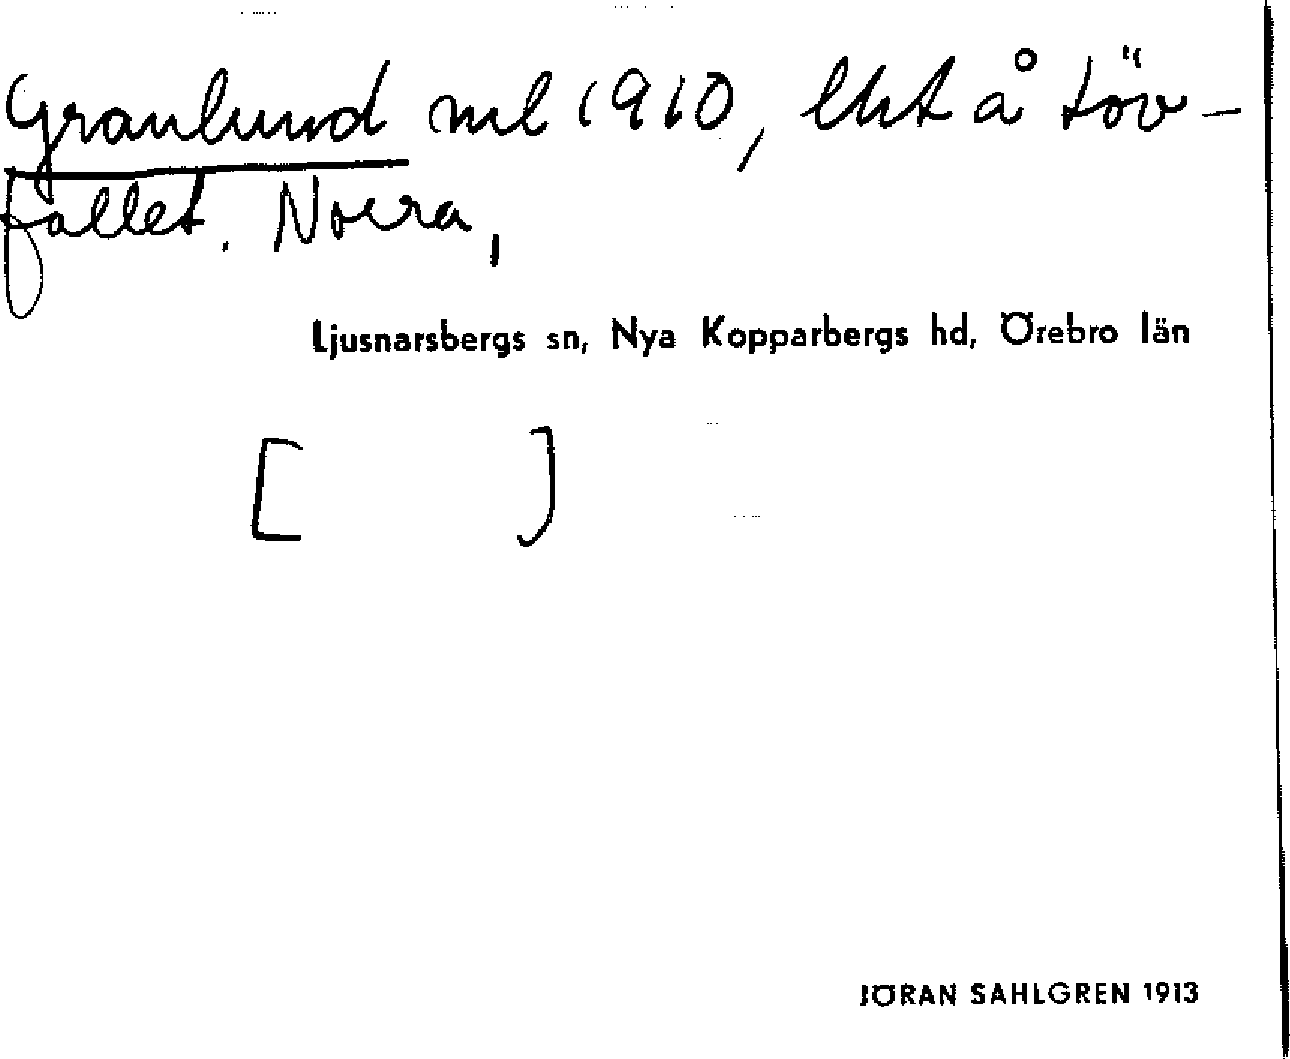 Granlund ml 1910, lht å Löv-
fallet. Norra,
Ljusnarsbergs sn, Nya Kopparbergs hd, Örebro län
[ ]
JÖRAN SAHLGREN 1913